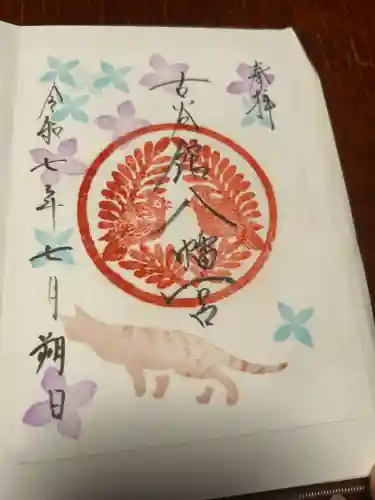 奉拝
古武館八幡宮
令和七年七月朔日